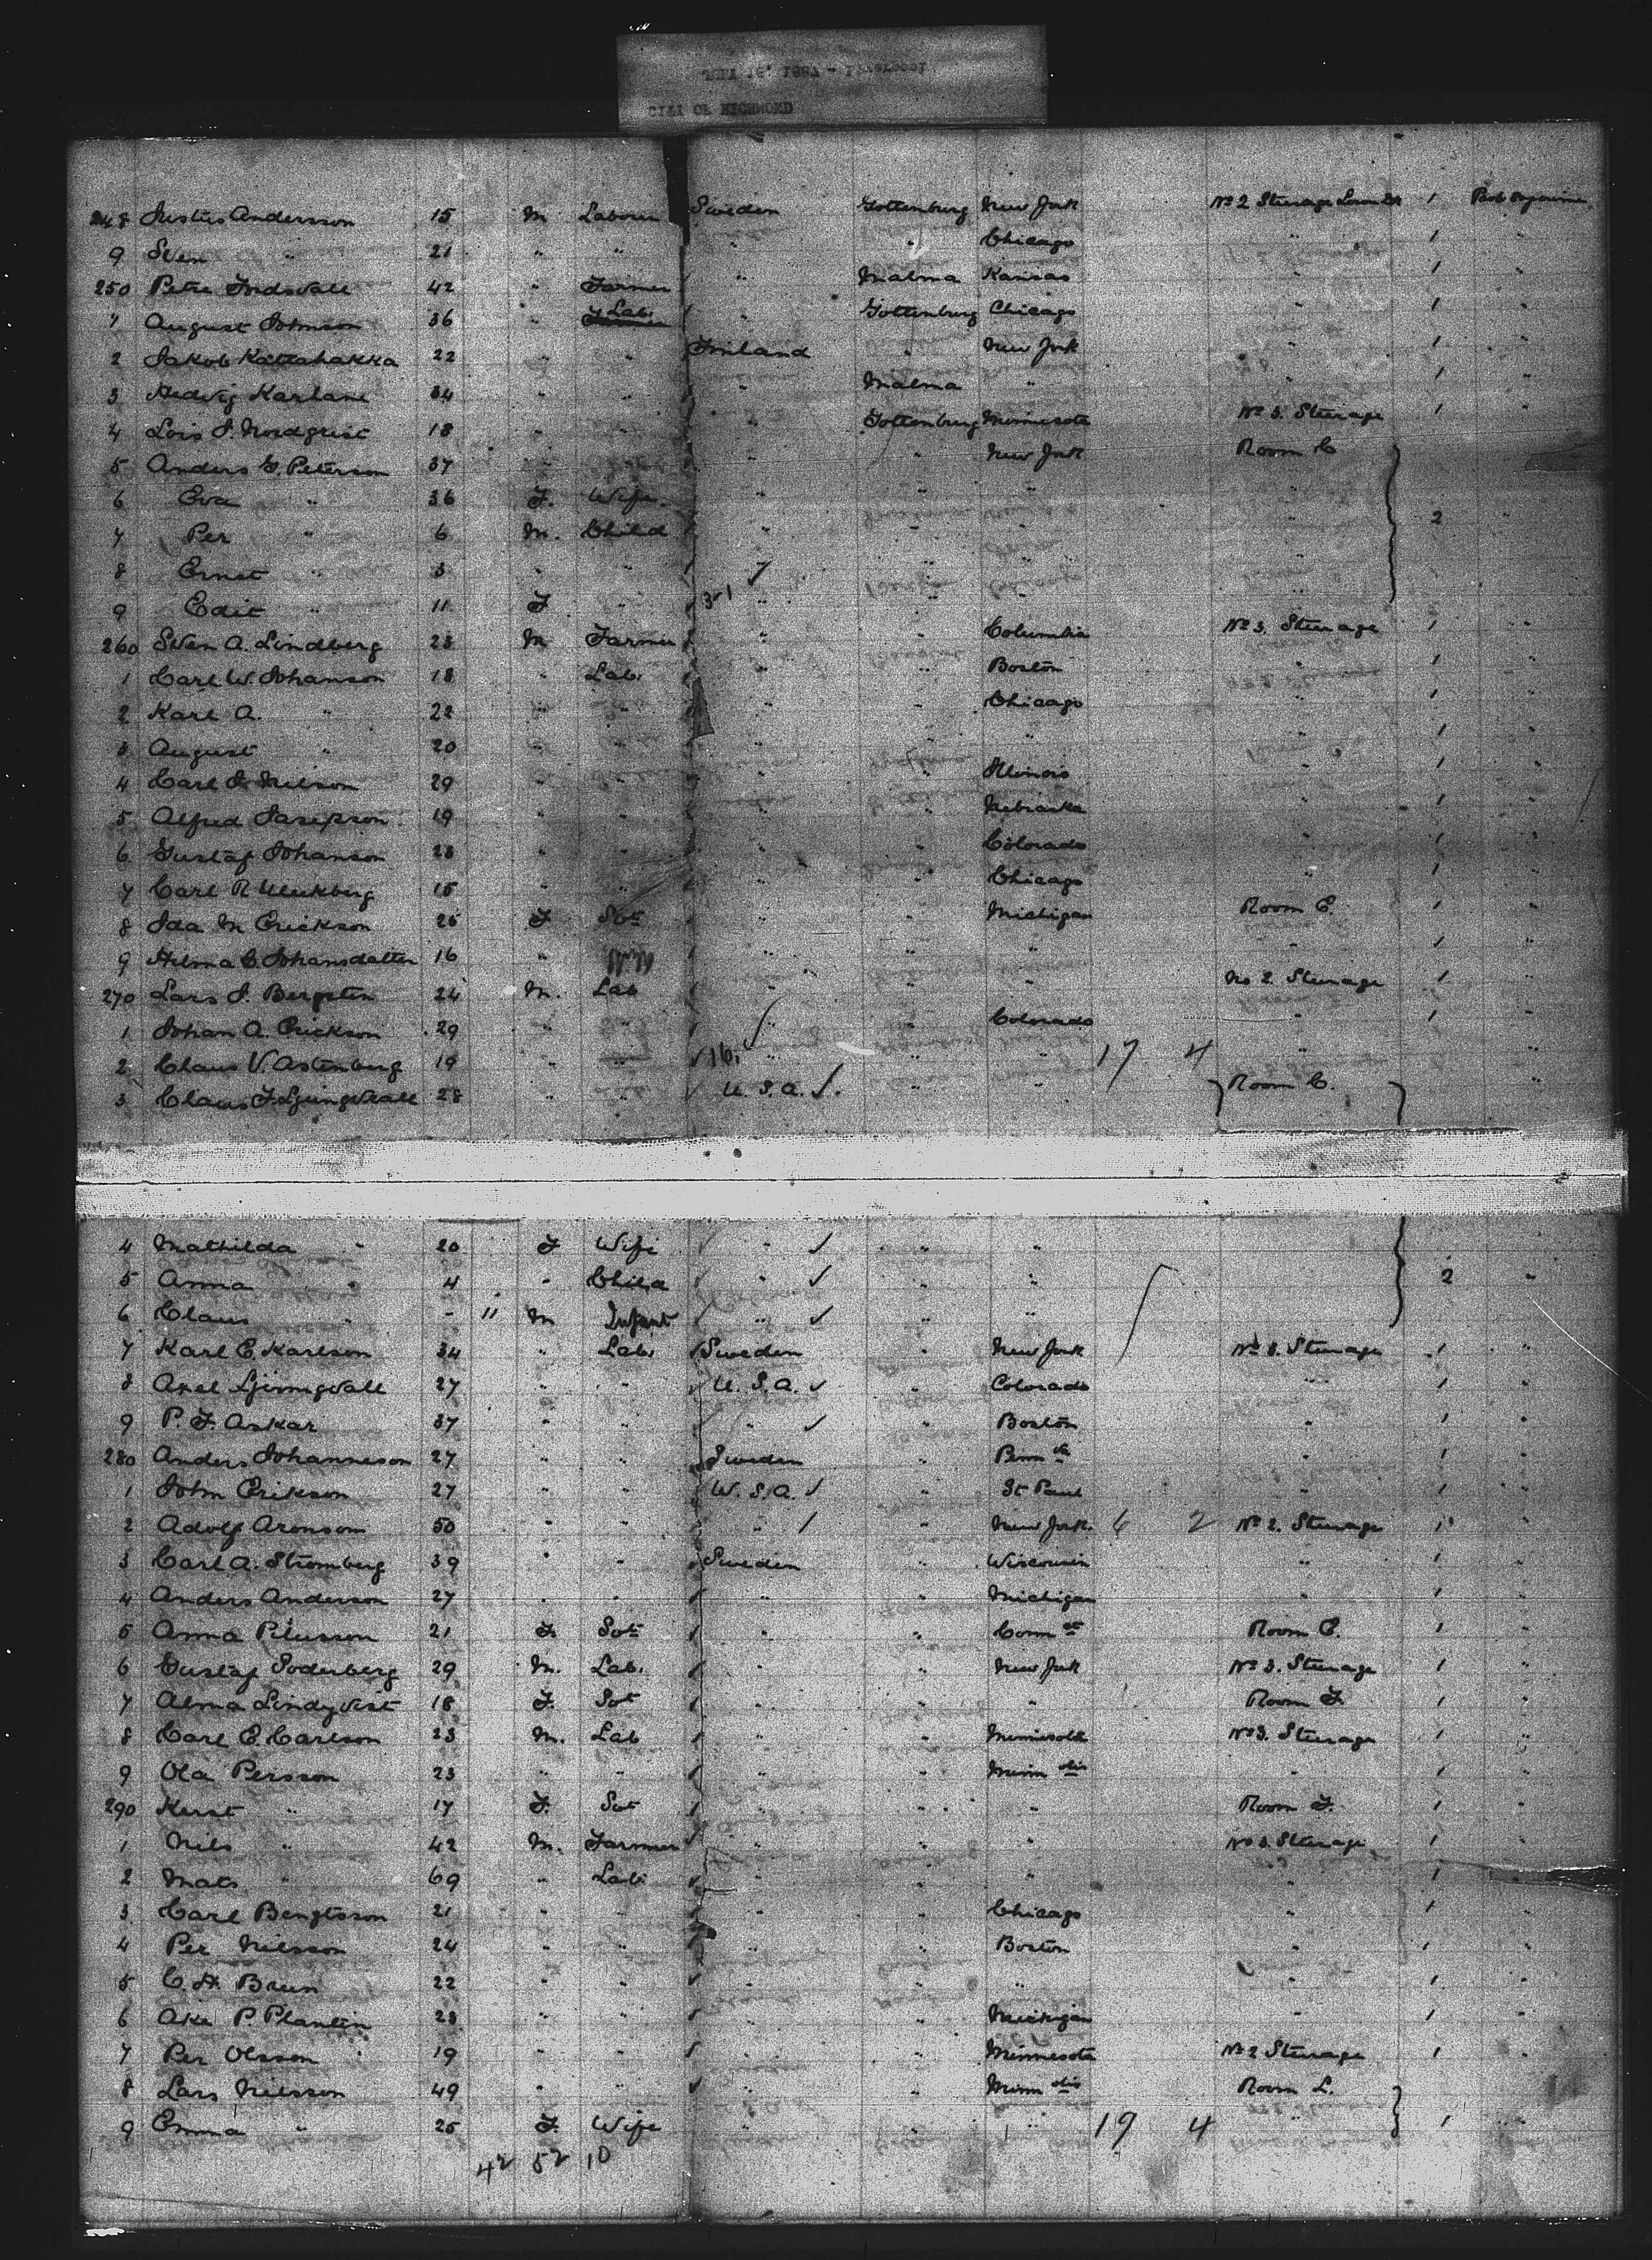 CITY OF RICHMOND
248 Justus Andersson 15 M Laborer Sweden Gottenburg New York No 2 Steerage 1
9 Sven " 21 " " " " Chicago " 1 "
250 Peter 42 " Farmer " Malma Kansas " 1 "
1 August Johnson 36 " Lab. " Gottenburg Chicago " 1 "
2 Jakob Kattahakka 22 " " Finland " New York " 1 "
3 Hedvig Karlane 34 " " " Malma " " 1 "
4 Lois J. Nordquist 18 " " " Gottenburg Minnesota No 3. Steerage 1 "
5 Anders G. Peterson 37 " " " " New York Room C
6 Eva " 36 F. Wife " " " "
7 Per " 6 M. Child " " " " 2 "
8 Ernst " 3 " " " " " "
9 Edit " 11 F " 3-1 " " "
260 Sven A. Lindberg 23 M Farmer " " Columbia No 3. Steerage 1 "
1 Carl W. Johanson 18 " Lab. " " Boston " 1 "
2 Karl A. " 22 " " " " Chicago " 1 "
3 August " 20 " " " " " " 1 "
4 Carl J. Nilson 29 " " " " Illinois " 1 "
5 Alfred 19 " " " " Nebraska " 1 "
6 Gustaf Johanson 23 " " " " Colorado " 1 "
7 Carl R 15 " " " " Chicago " 1 "
8 Ida M Erickson 25 F " " Michigan Room E. 1 "
9 Hilma C. Johansdatter 16 " " " " " 1 "
270 Lars J. Bergsten 24 M. Lab " " " No 2. Steerage 1 "
1 Johan A. Erickson 29 " " " " Colorado " 1 "
2 Claus V. Astenberg 19 " " 16. " " 17 4 "
3 Claus F. Ljungvall 28 " " U.S.A. " " Room C. "
4 Mathilda " 20 F Wife " " "
5 Anna " 4 " Child " " " 2 "
6 Claus " - 11 M Infant " " "
7 Karl E Karlson 34 " Lab. Sweden New York No 3. Steerage 1 "
8 Axel Ljungvall 27 " " U.S.A. " Colorado " 1 "
9 P. F. Askar 37 " " " " Boston " 1 "
280 Anders Johanneson 27 " " Sweden " Penn " 1 "
1 John Erikson 27 " " U.S.A. " St Paul " 1 "
2 Adolf Aronson 50 " " " " New York 6 2 No 2. Steerage 1 "
3 Carl A. Stromberg 39 " " Sweden " Wisconsin " 1 "
4 Anders Anderson 27 " " " " Michigan " 1 "
5 Anna 21 F. " " Conn ct Room E. 1 "
6 Gustaf Soderberg 29 M. Lab. " " New York No 3. Steerage 1 "
7 Alma Lindqvist 18 F. " " " Room F. 1 "
8 Carl E. Carlson 23 M. Lab " " Minnesota No 3. Steerage 1 "
9 Ola Persson 23 " " " " Minn olis " 1 "
290 Kerst " 17 F. " " " Room F. 1 "
1 Nils " 42 M. Farmer " " " No 3 Steerage 1 "
2 Mats " 69 " Lab. " " " " 1 "
3 Carl Bengtsson 21 " " " " Chicago " 1 "
4 Per Nilsson 24 " " " " Boston " 1 "
5 C. H. Brun 22 " " " " " " 1 "
6 Ake P. Plantin 23 " " " " Michigan " 1 "
7 Per Olsson 19 " " " " Minnesota No 2 Steerage 1 "
8 Lars Nilsson 49 " " " " Minn olis Room L.
9 Emma " 25 F. Wife " " " 19 4 " 1 "
42 52 10